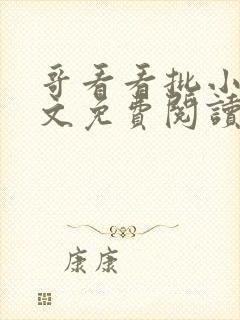 哥看看批小
文免費閱讀
康康